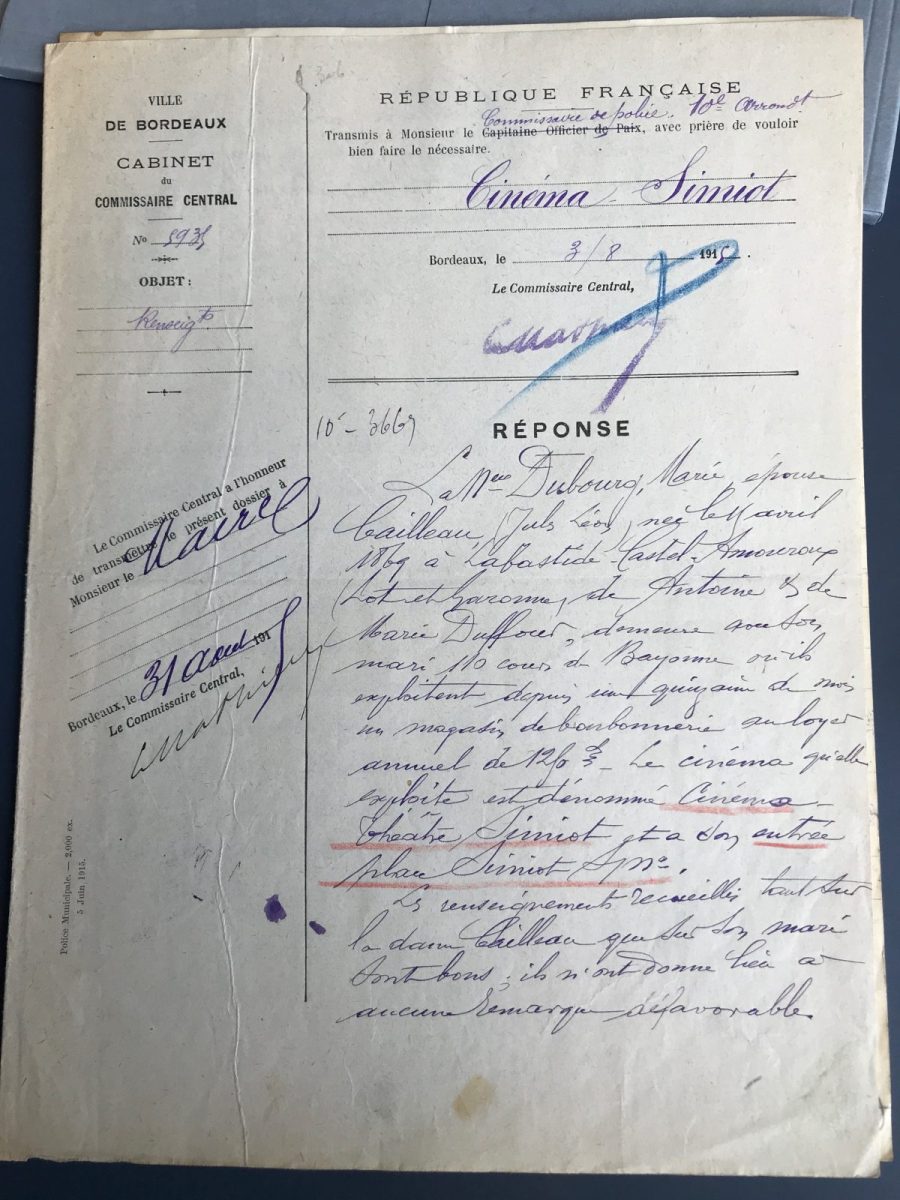 VILLE
DE BORDEAUX
CABINET
du
COMMISSAIRE CENTRAL
No 5935
OBJET :
Renseigts
RÉPUBLIQUE FRANÇAISE
Commissaire de police 10e Arrondt
Transmis à Monsieur le Capitaine Officier de Paix, avec prière de vouloir
bien faire le nécessaire.
Cinéma Simiot
Bordeaux, le 3/8 1915.
Le Commissaire Central,
10 - 3669
RÉPONSE
La Nee Dubourg, Marie, épouse
Cailleau, Jules Léon, née le avril
1869 à Labastide Castel-Amouroux
(Lot et Garonne, de Antoine & de
Marie Duffour, demeure avec son
mari 110 cours de Bayonne où ils
exploitent depuis une quinzaine de mois
un magasin de bonbonnerie au loyer
annuel de Le cinéma qu'elle
exploite est dénommé Cinéma-
Théâtre Simiot et a son entrée
place Simiot
Les renseignements recueillis tant sur
la dame Cailleau que sur son mari
sont bons ; ils n'ont donné lieu à
aucune remarque défavorable.
Le Commissaire Central a l'honneur
de transmettre le présent dossier à
Monsieur le Maire
Bordeaux, le 31 Aout 1915
Le Commissaire Central,
Police Municipale. — 2,000 ex.
5 Juin 1915.